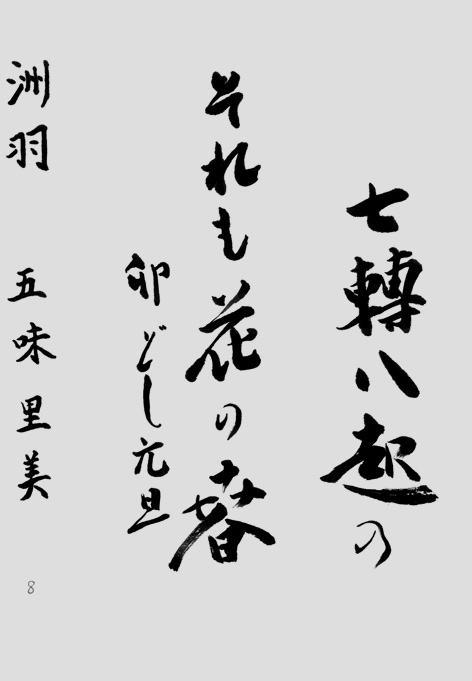 七轉八起の
それも花の春
卯どし元旦
洲羽 五味里美
8